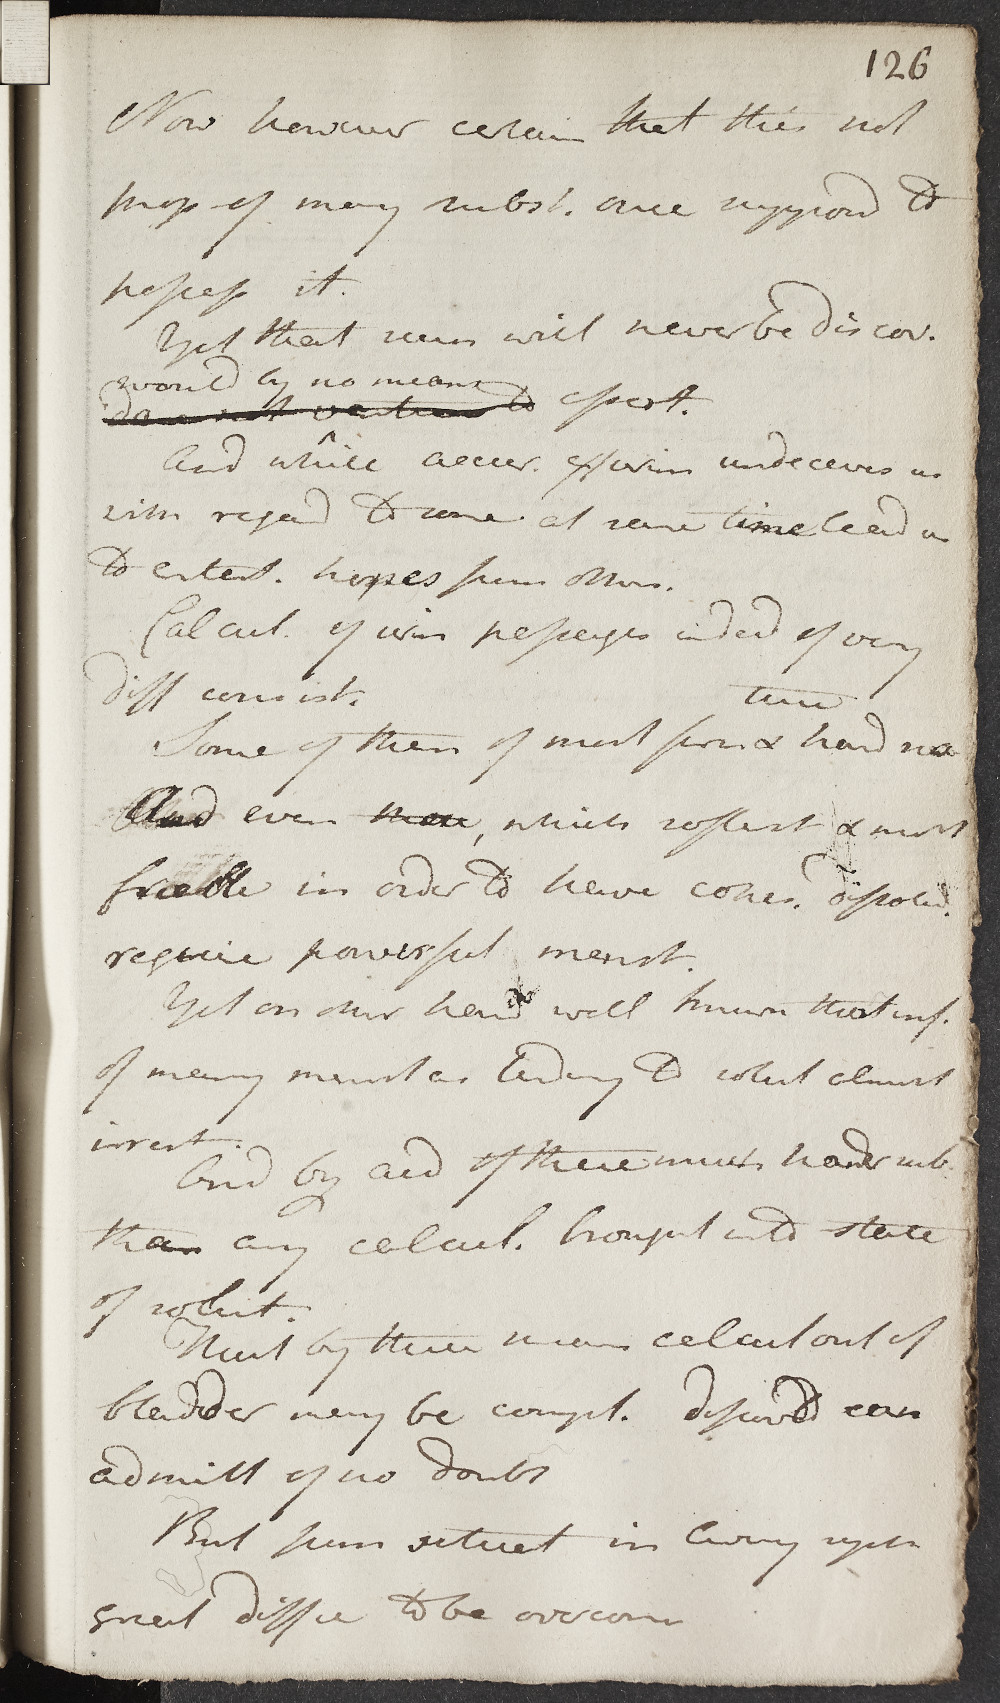 126
Now however certain that this not
prop of many subst. once suppos'd to
possess it.
Yet that such will never be discov.
would by no means
do not venture to assert.
And while accur. experim undeceives us
with regard to some at same time lead us
to entert. hopes from others.
Calcul. of urin passages indeed of very
diff consist.
Some of them of most firm & hard na
ture
And even those, which softest & most
friable in order to have cohes. dissolv.
require powerful menst.
Yet on other hand well known that inf.
of many menst as tending to solut almost
irresist.
And by aid of these much harder sub.
than any calcul. brought into state
of solut.
That by these means calcul out of
bladder may be compl. dissolved can
admitt of no doubt
But from situat in living syst
great diffic to be overcome